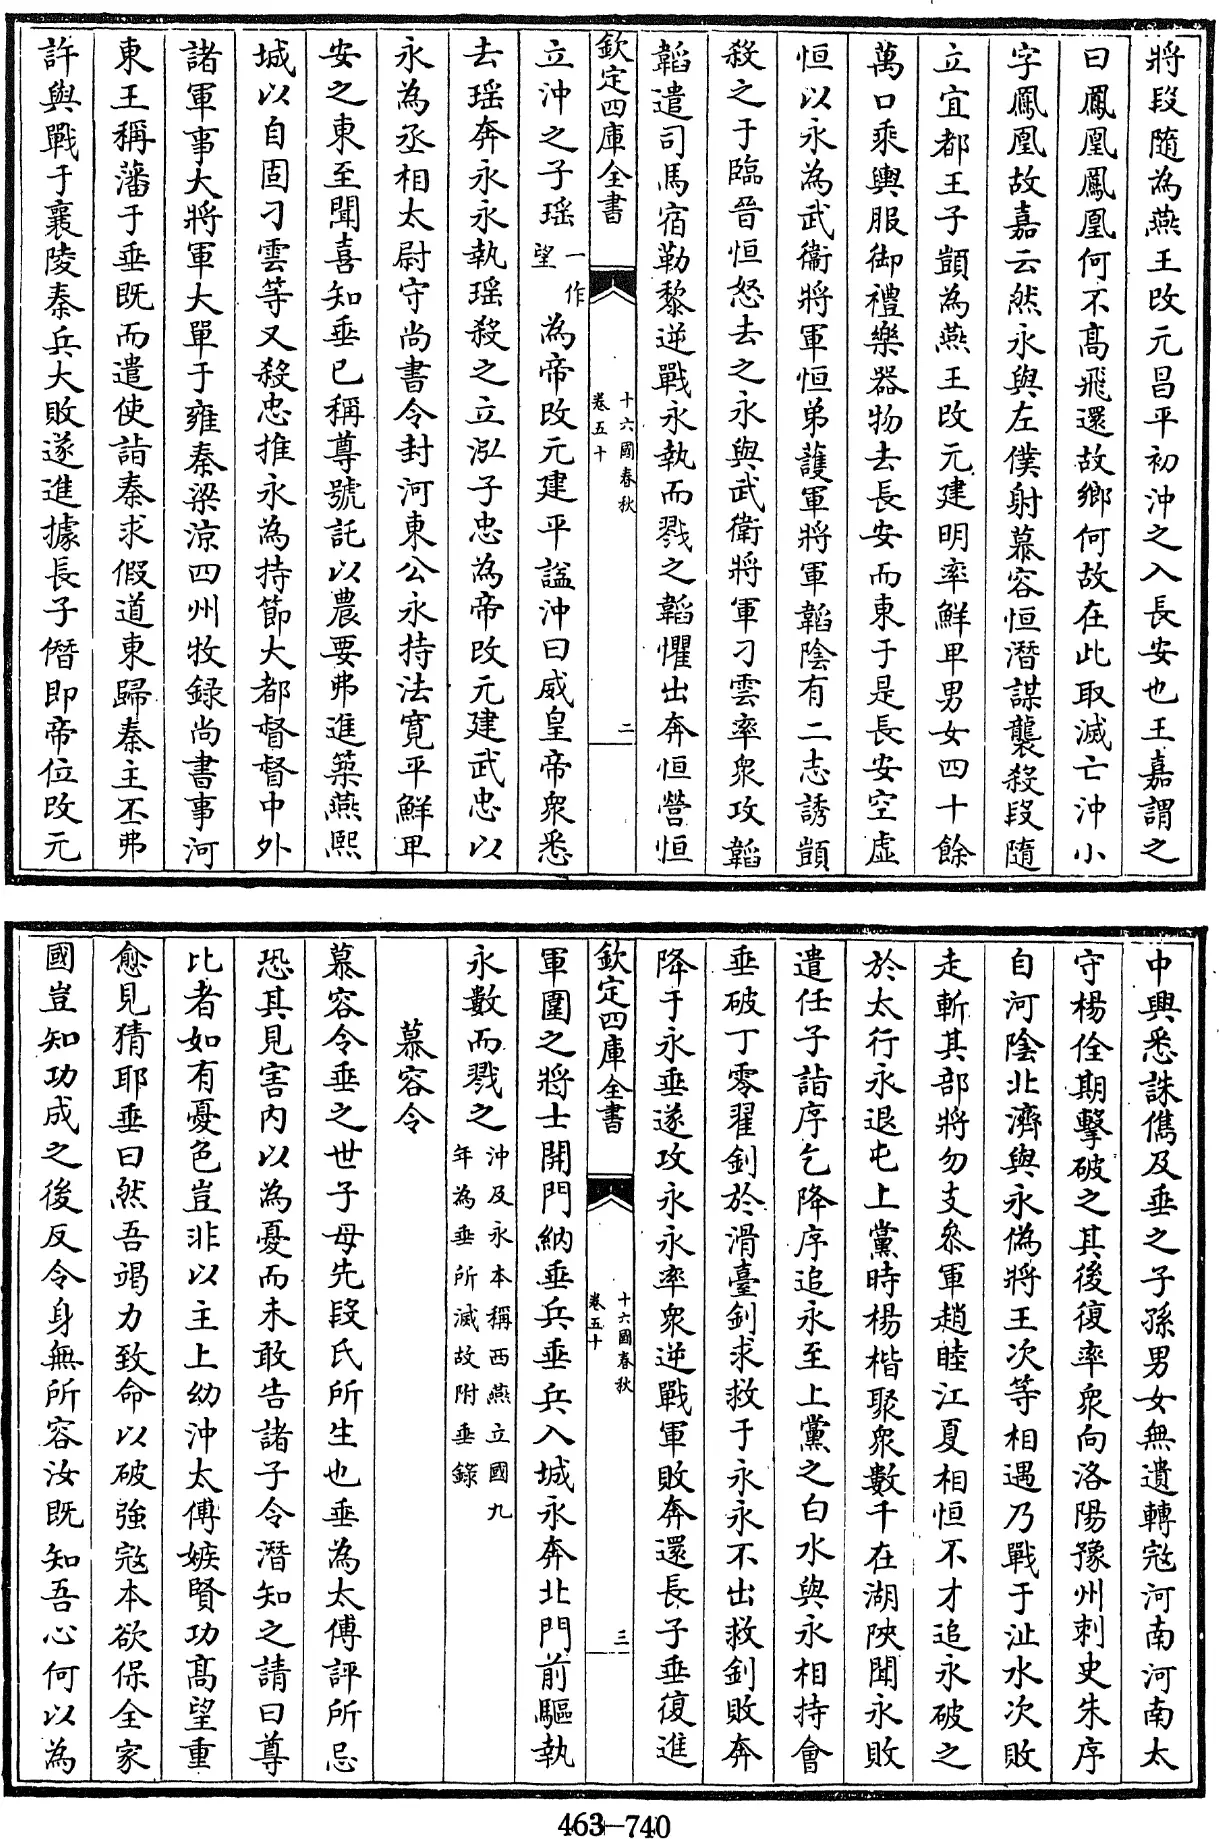 將段隨為燕王改元昌平初沖之入長安也王嘉謂之
曰鳳凰鳳凰何不高飛還故鄉何故在此取滅亡沖小
字鳳凰故嘉云然永與左僕射慕容恒潛謀襲殺段隨
立宜都王子顗為燕王改元建明率鮮卑男女四十餘
萬口乘輿服御禮樂器物去長安而東于是長安空虛
恒以永為武衞將軍恒弟護軍將軍韜陰有二志誘顗
殺之于臨晉恒怒去之永與武衛將軍刁雲率衆攻韜
韜遣司馬宿勒黎逆戰永執而戮之韜懼出奔恒營恒
欽定四庫全書
十六國春秋
卷五十
二
立沖之子瑶一作望為帝改元建平謚沖曰威皇帝衆悉
去瑶奔永永執瑶殺之立泓子忠為帝改元建武忠以
永為丞相太尉守尚書令封河東公永持法寛平鮮卑
安之東至聞喜知垂已稱尊號託以農要弗進築燕熙
城以自固刁雲等又殺忠推永為持節大都督督中外
諸軍事大將軍大單于雍秦梁涼四州牧録尚書事河
東王稱藩于垂既而遣使詣秦求假道東歸秦主丕弗
許與戰于襄陵秦兵大敗遂進據長子僭即帝位改元
中興悉誅儁及垂之子孫男女無遺轉宼河南河南太
守楊佺期擊破之其後復率衆向洛陽豫州刺史朱序
自河陰北濟與永偽將王次等相遇乃戰于沚水次敗
走斬其部將勿支叅軍趙睦江夏相恒不才追永破之
於太行永退屯上黨時楊楷聚衆數千在湖陜聞永敗
遣任子詣序乞降序追永至上黨之白水與永相持會
垂破丁零翟釗於滑臺釗求救于永永不出救釗敗奔
降于永垂遂攻永永率衆逆戰軍敗奔還長子垂復進
欽定四庫全書
十六國春秋
卷五十
三
軍圍之將士開門納垂兵垂兵入城永奔北門前驅執
永數而戮之沖及永本稱西燕立國九年為垂所滅故附垂錄
慕容令
慕容令垂之世子母先段氏所生也垂為太傅評所忌
恐其見害内以為憂而未敢告諸子令潛知之請曰尊
比者如有憂色豈非以主上幼沖太傅嫉賢功髙望重
愈見猜耶垂曰然吾竭力致命以破強宼本欲保全家
國豈知功成之後反令身無所容汝既知吾心何以為
463-740